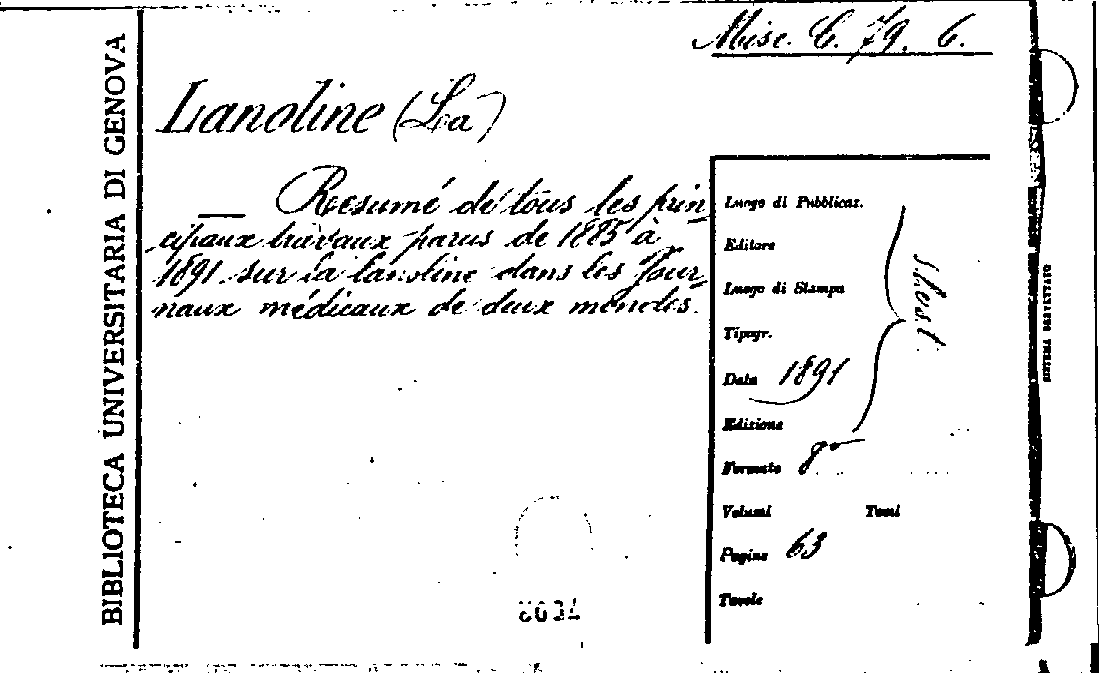 Misc. C. 79. 6.
BIBLIOTECA UNIVERSITARIA DI GENOVA
Lanoline (La)
— Resumé de tous les prin-
cipaux travaux parus de 1885 à
1891 sur la lanoline dans les Jour-
naux médicaux de deux mondes.
Luogo di Pubblicaz.
Editore
Luogo di Stampa
Tipogr.
Data 1891
Edizione
Formato 8º
Volumi Tomi
Pagine 63
Tavole
SISTEMA BREVETTATO